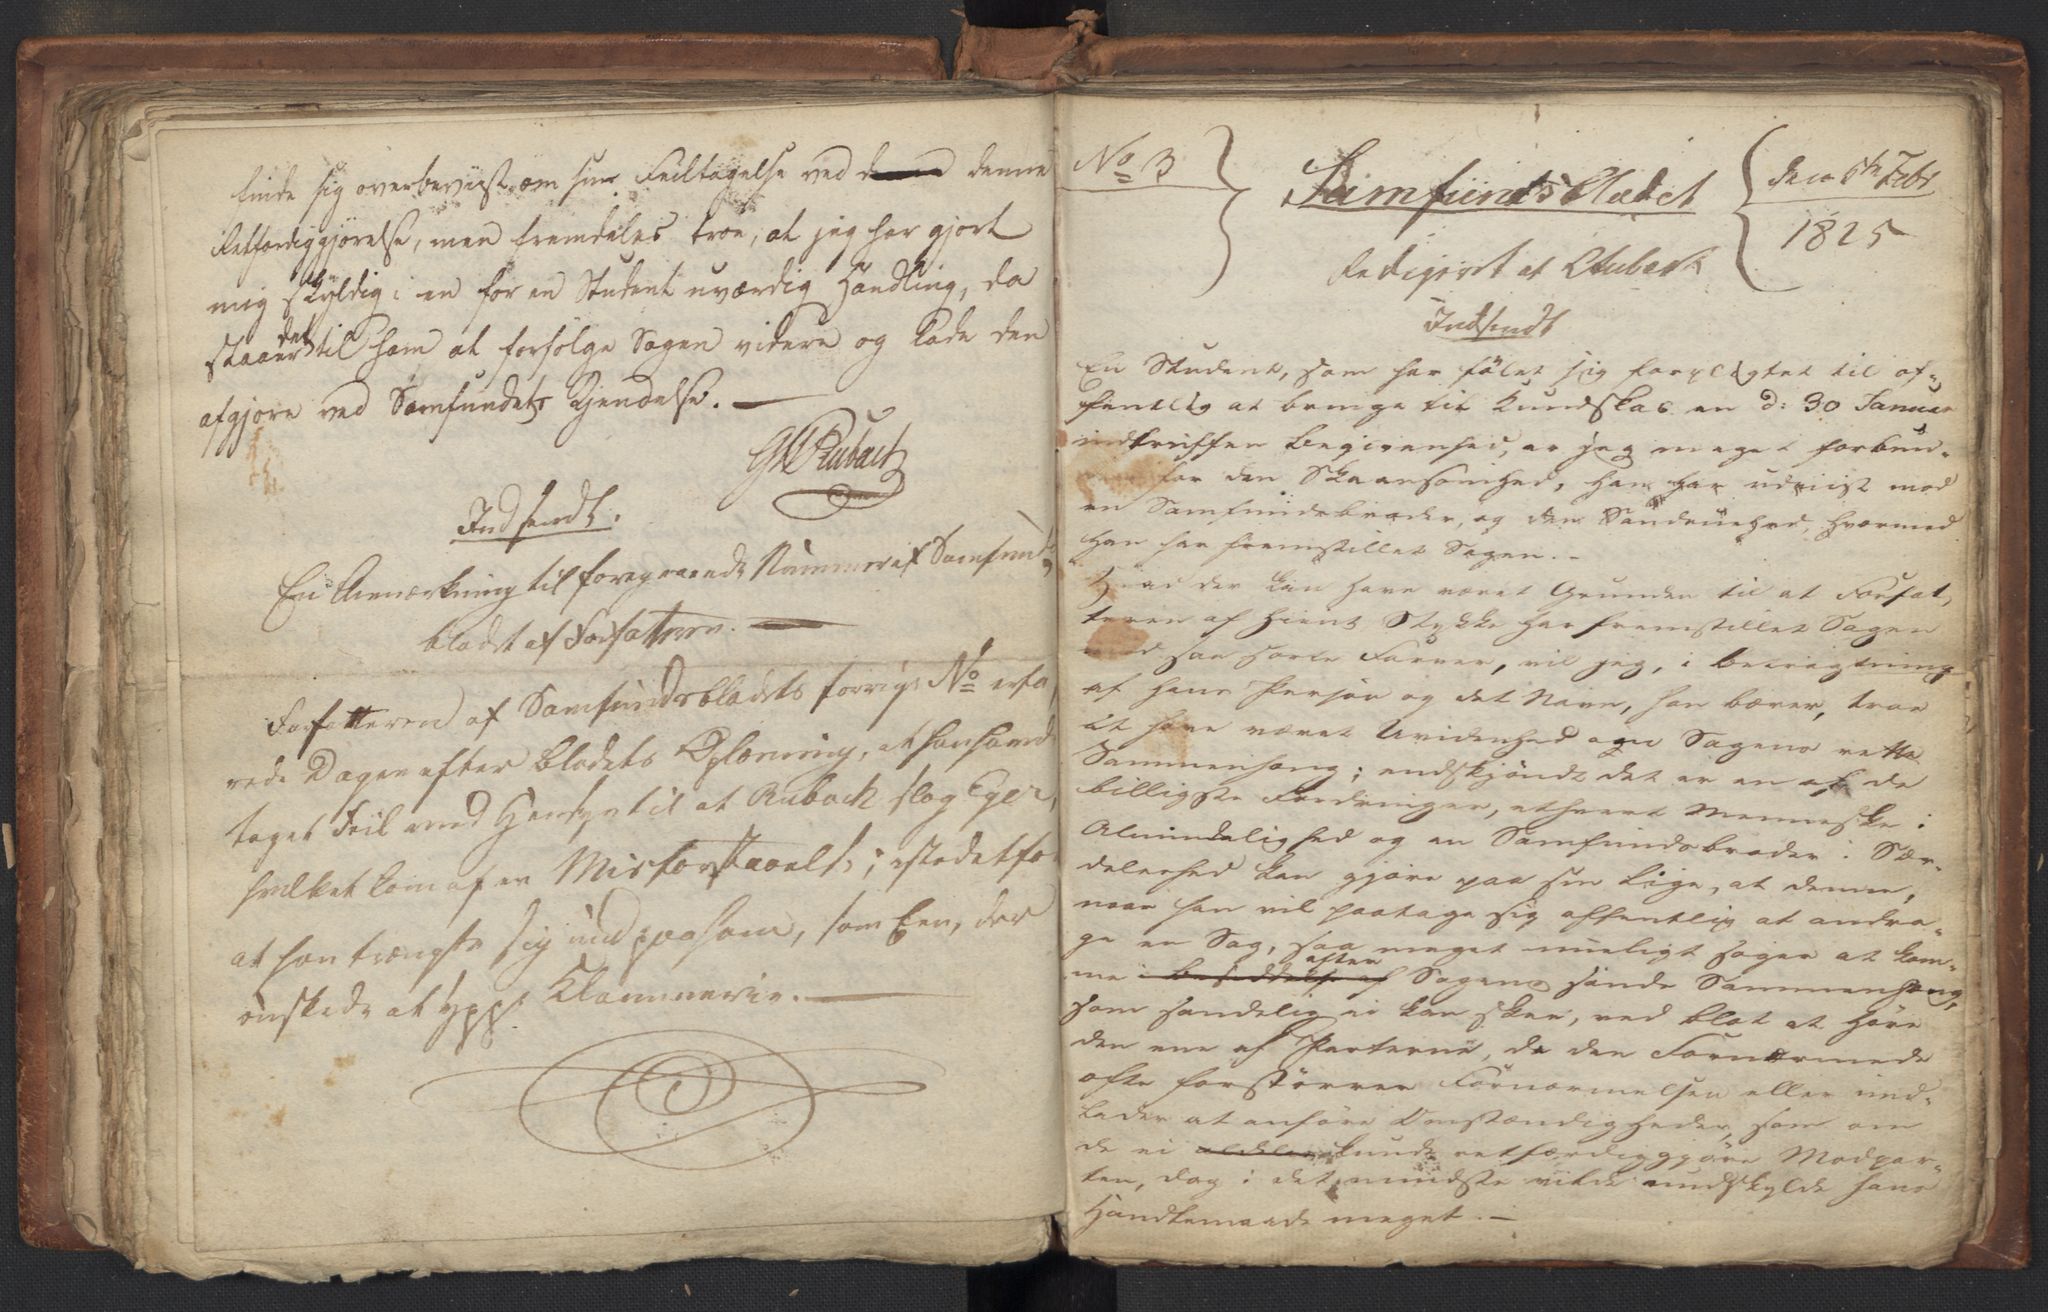 finde sig overbeviist om sin Feiltagelse ved denne
Retfærdiggjørelse, men fremdeles troe, at jeg har gjort
mig skyldig i en for en Student uværdig Handling, da
staaer det til ham at forfølge Sagen videre og lade den
afgjøre ved Samfundets Kjendelse. —
G Rubach
Indsendt.
En Anmærkning til foregaaende Nummer af Samfunds-
bladet af Forfatteren. —
Forfatteren af Samfundsbladets forrige No erfa-
rede Dagen efter Bladets Oplæsning, at han havde
taget Feil med Hensyn til at Rubach slog Eger,
hvilket kom af en Misforstaaelse; istedetfor
at han trængte sig ind paa ham, som Een, der
ønskede at yppe Klammerie. —
No 3
Samfundsbladet
den 5te Febr
1825
Redigeret af Rubach
Indsendt
En Student, som har følet sig forpligtet til of-
fentlig at bringe til Kundskab en d: 30 Januar
indtruffen Begivenhed, er jeg meget forbun-
den for den Skaansomhed, han har udviist mod
en Samfundsbroder, og den Sandruehed, hvormed
han har fremstillet Sagen. —
Hvad der kan have været Grunden til at Forfat-
teren af hiint Stykke har fremstillet Sagen
med saa sorte Farver, vil jeg, i Betragtning
af hans Person og det Navn, han bærer, troe
at have været Uvidenhed om Sagens rette
Sammenhæng; endskjøndt det er en af de
billigste Fordringer, ethvert Menneske i
Almindelighed og en Samfundsbroder i Sær-
deleshed kan gjøre paa sin Lige, at denne,
naar han vil paatage sig offentlig at andra-
ge en Sag, saa meget mueligt søger at kom-
me i Besiddelse af efter Sagens sande Sammenhæng,
som sandelig ei kan skee, ved blot at høre
den ene af Parterne, da den Fornærmede
ofte forstørrer Fornærmelsen eller und-
lader at anføre Omstændigheder, som om
de ei kunde retfærdiggjøre Modpar-
ten, dog i det mindste vilde undskylde hans
Handlemaade meget. —